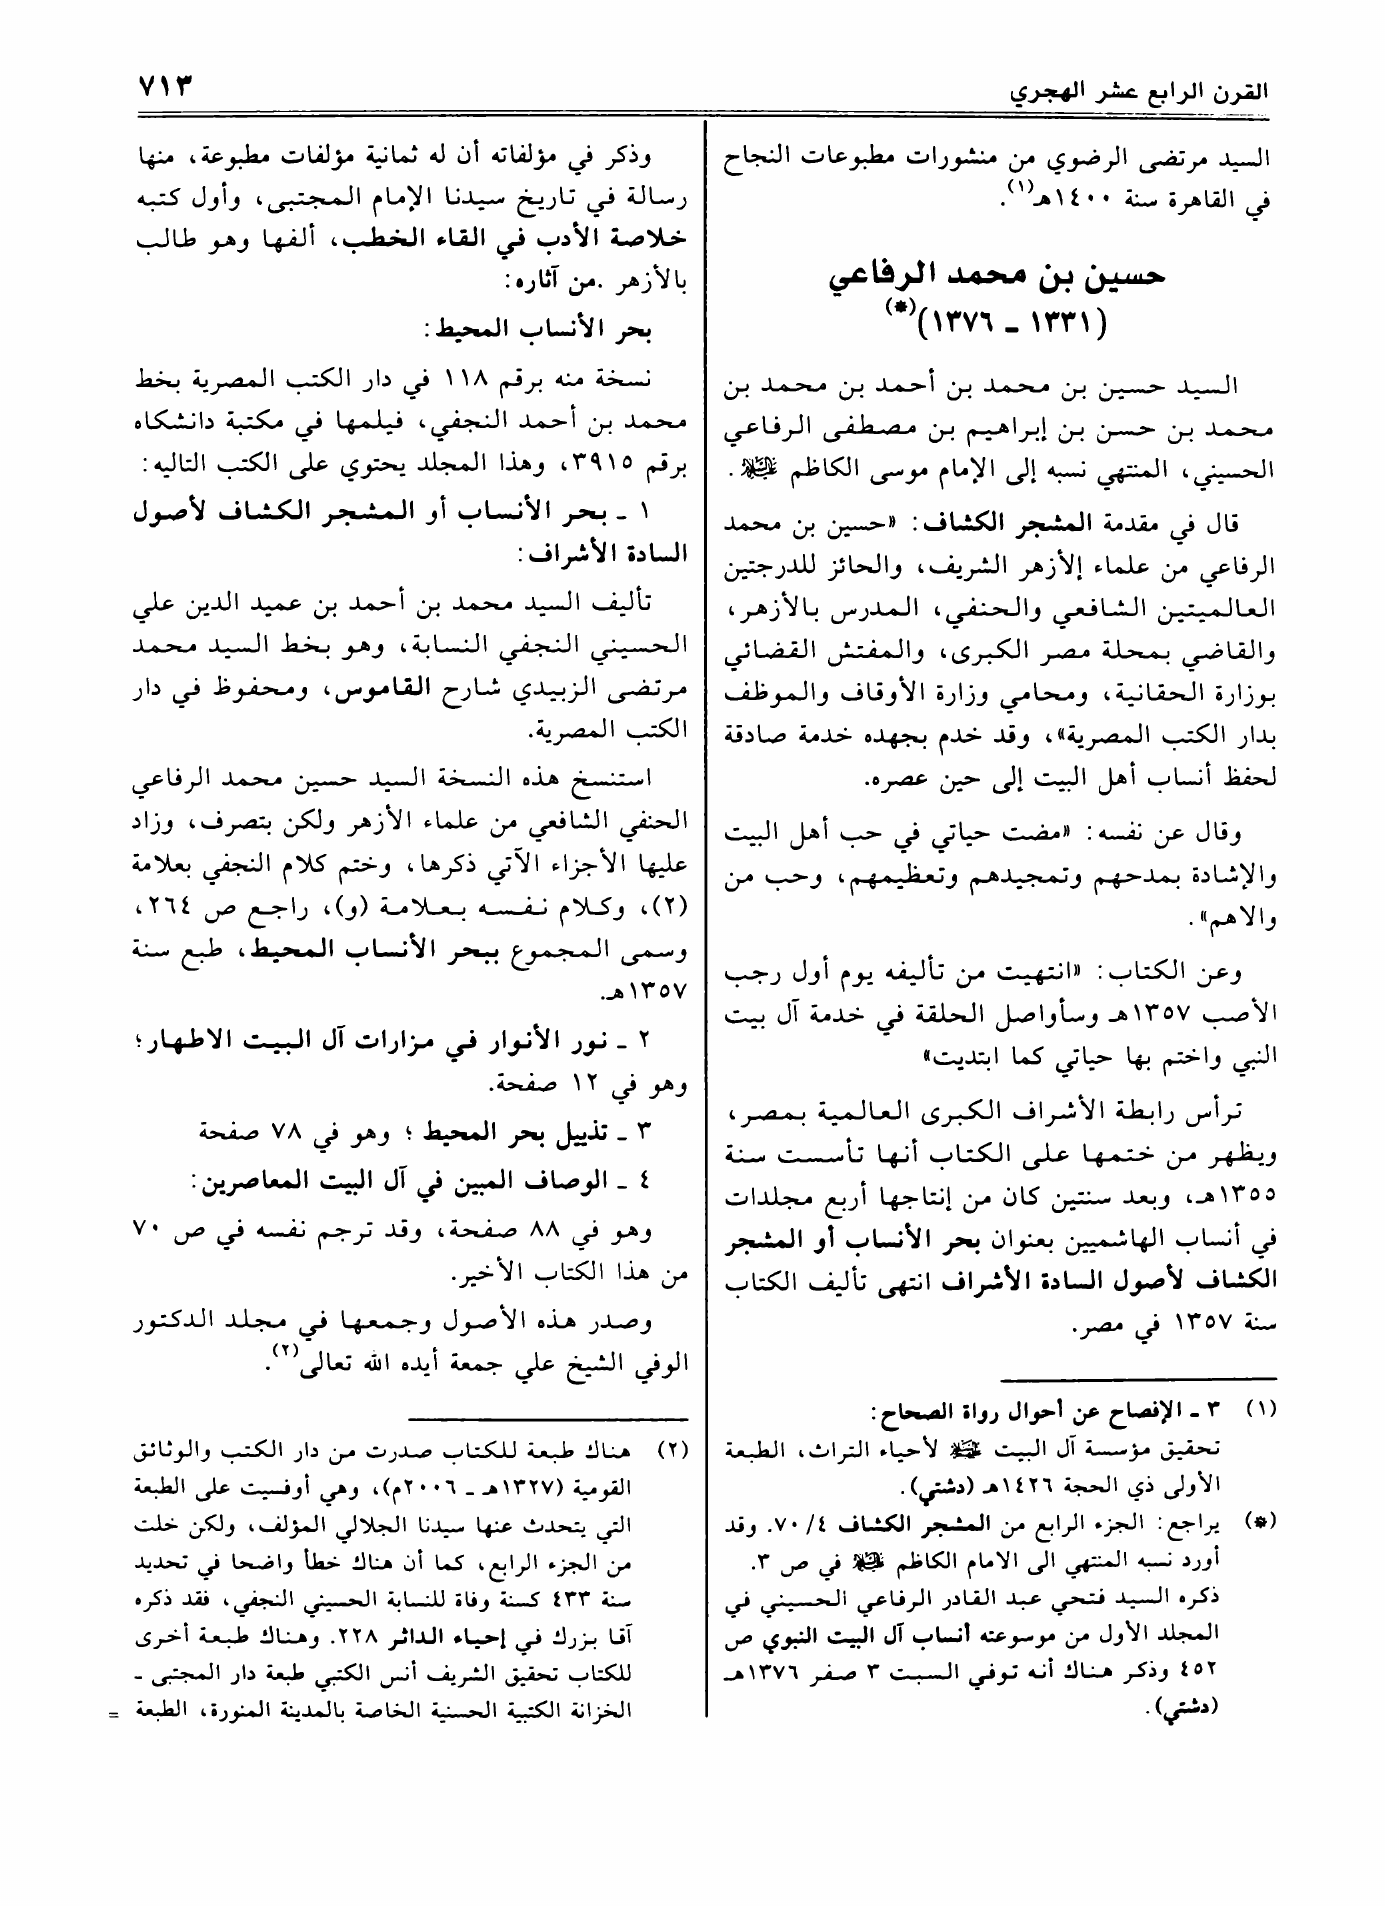 القرن الرابع عشر الهجري
٧١٣
السيد مرتضى الرضوي من منشورات مطبوعات النجاح
في القاهرة سنة ١٤٠٠هـ(١).
حسين بن محمد الرفاعي
(١٣٣١ ـ ١٣٧٦)(*)
السيد حسين بن محمد بن أحمد بن محمد بن
محمد بن حسن بن إبراهيم بن مصطفى الرفاعي
الحسيني، المنتهي نسبه إلى الإمام موسى الكاظم عليه السلام.
قال في مقدمة المشجر الكشاف: «حسين بن محمد
الرفاعي من علماء إلأزهر الشريف، والحائز للدرجتين
العالميتين الشافعي والحنفي، المدرس بالأزهر،
والقاضي بمحلة مصر الكبرى، والمفتش القضائي
بوزارة الحقانية، ومحامي وزارة الأوقاف والموظف
بدار الكتب المصرية»، وقد خدم بجهده خدمة صادقة
لحفظ أنساب أهل البيت إلى حين عصره.
وقال عن نفسه: «مضت حياتي في حب أهل البيت
والإشادة بمدحهم وتمجيدهم وتعظيمهم، وحب من
والاهم».
وعن الكتاب: «انتهيت من تأليفه يوم أول رجب
الأصب ١٣٥٧هـ وسأواصل الحلقة في خدمة آل بيت
النبي واختم بها حياتي كما ابتديت»
ترأس رابطة الأشراف الكبرى العالمية بمصر،
ويظهر من ختمها على الكتاب أنها تأسست سنة
١٣٥٥هـ، وبعد سنتين كان من إنتاجها أربع مجلدات
في أنساب الهاشميين بعنوان بحر الأنساب أو المشجر
الكشاف لأصول السادة الأشراف انتهى تأليف الكتاب
سنة ١٣٥٧ في مصر.
(١) ٣ ـ الإفصاح عن أحوال رواة الصحاح:
تحقيق مؤسسة آل البيت عليهم السلام لأحياء التراث، الطبعة
الأولى ذي الحجة ١٤٢٦هـ (دشتي).
(*) يراجع: الجزء الرابع من المشجر الكشاف ٧٠/٤. وقد
أورد نسبه المنتهي الى الامام الكاظم عليه السلام في ص ٣.
ذكره السيد فتحي عبد القادر الرفاعي الحسيني في
المجلد الأول من موسوعته أنساب آل البيت النبوي ص
٤٥٢ وذكر هناك أنه توفي السبت ٣ صفر ١٣٧٦هـ
(دشتي).
وذكر في مؤلفاته أن له ثمانية مؤلفات مطبوعة، منها
رسالة في تاريخ سيدنا الإمام المجتبى، وأول كتبه
خلاصة الأدب في القاء الخطب، ألفها وهو طالب
بالأزهر .من آثاره:
بحر الأنساب المحيط:
نسخة منه برقم ١١٨ في دار الكتب المصرية بخط
محمد بن أحمد النجفي، فيلمها في مكتبة دانشكاه
برقم ٣٩١٥، وهذا المجلد يحتوي على الكتب التاليه:
١ ـ بحر الأنساب أو المشجر الكشاف لأصول
السادة الأشراف:
تأليف السيد محمد بن أحمد بن عميد الدين علي
الحسيني النجفي النسابة، وهو بخط السيد محمد
مرتضى الزبيدي شارح القاموس، ومحفوظ في دار
الكتب المصرية.
استنسخ هذه النسخة السيد حسين محمد الرفاعي
الحنفي الشافعي من علماء الأزهر ولكن بتصرف، وزاد
عليها الأجزاء الآتي ذكرها، وختم كلام النجفي بعلامة
(٢)، وكلام نفسه بعلامة (و)، راجع ص ٢٦٤،
وسمى المجموع ببحر الأنساب المحيط، طبع سنة
١٣٥٧هـ.
٢ ـ نور الأنوار في مزارات آل البيت الاطهار؛
وهو في ١٢ صفحة.
٣ ـ تذييل بحر المحيط ؛ وهو في ٧٨ صفحة
٤ ـ الوصاف المبين في آل البيت المعاصرين:
وهو في ٨٨ صفحة، وقد ترجم نفسه في ص ٧٠
من هذا الكتاب الأخير.
وصدر هذه الأصول وجمعها في مجلد الدكتور
الوفي الشيخ علي جمعة أيده الله تعالى(٢).
(٢) هناك طبعة للكتاب صدرت من دار الكتب والوثائق
القومية (١٣٢٧هـ ـ ٢٠٠٦م)، وهي أوفسيت على الطبعة
التي يتحدث عنها سيدنا الجلالي المؤلف، ولكن خلت
من الجزء الرابع، كما أن هناك خطأ واضحا في تحديد
سنة ٤٣٣ كسنة وفاة للنسابة الحسيني النجفي، فقد ذكره
آقا بزرك في إحياء الداثر ٢٢٨. وهناك طبعة أخرى
للكتاب تحقيق الشريف أنس الكتبي طبعة دار المجتبى ـ
الخزانة الكتبية الحسنية الخاصة بالمدينة المنورة، الطبعة =